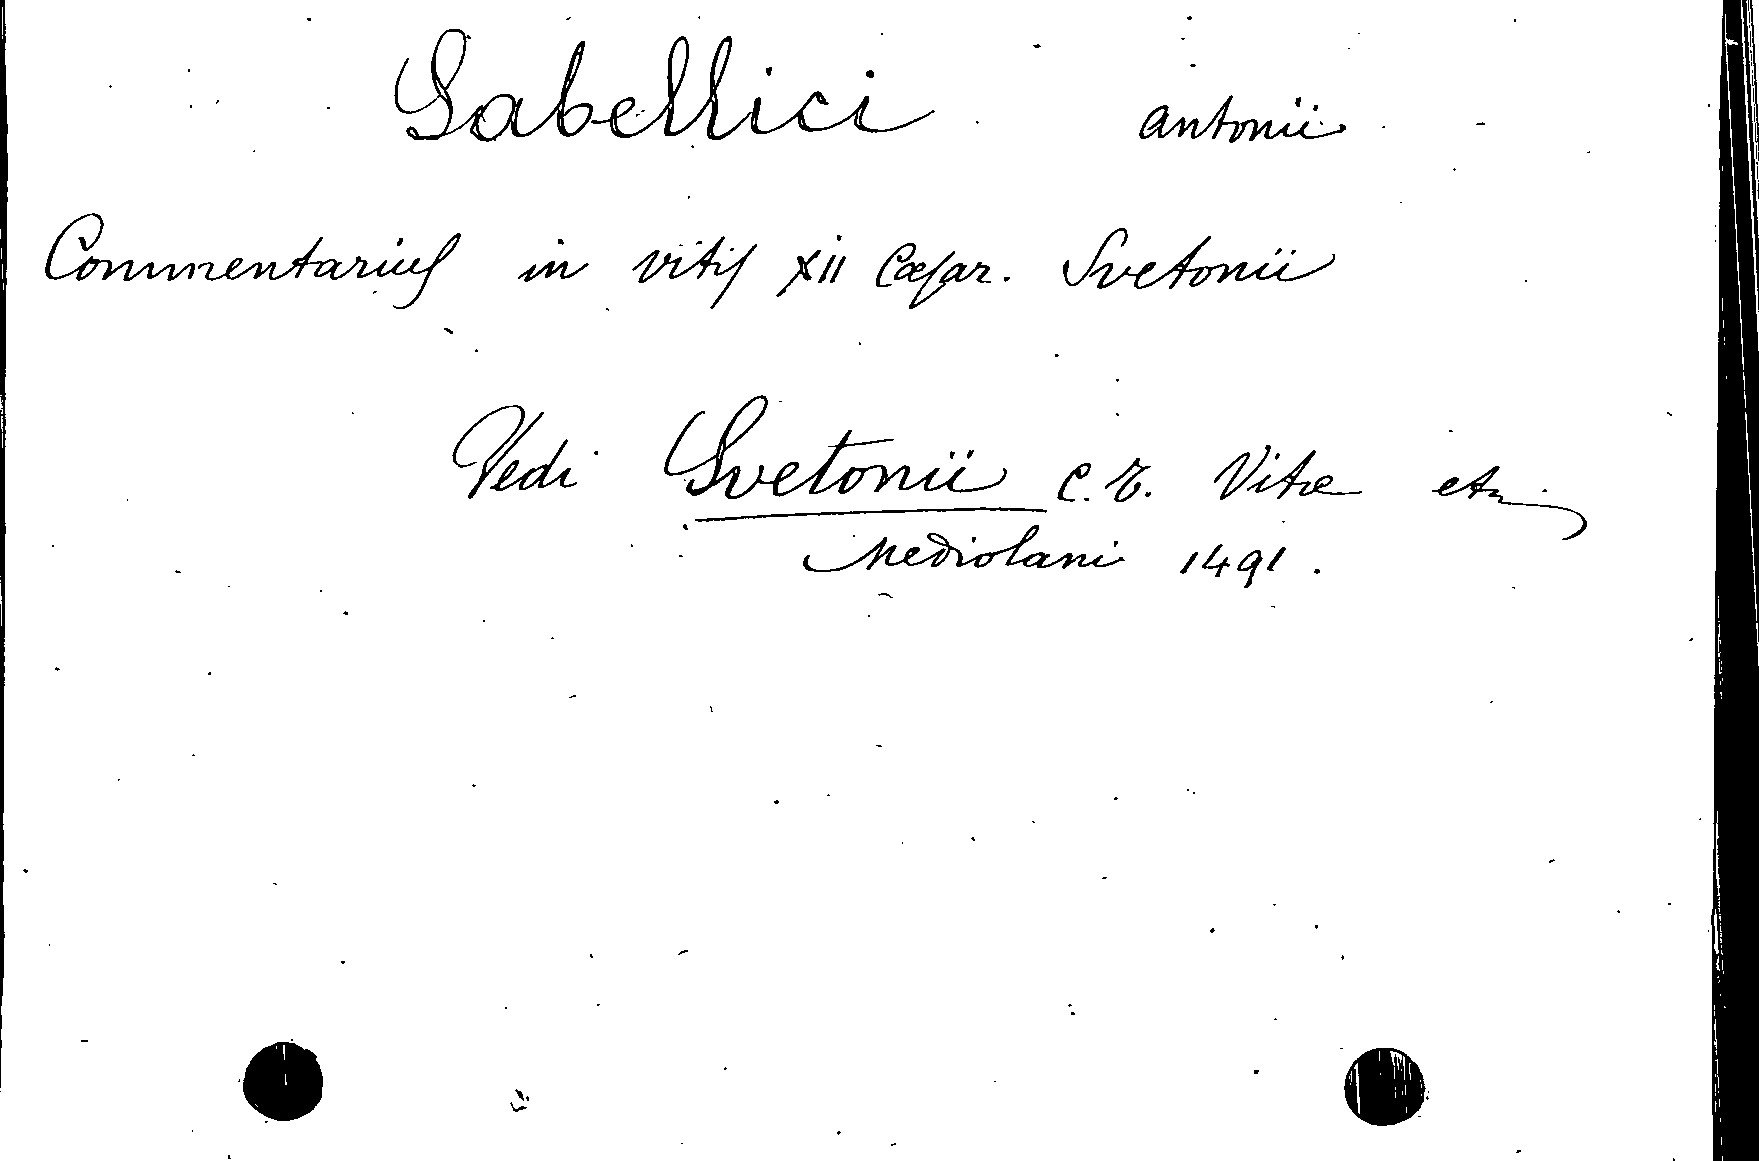 Sabellici antonii
Commentarius in vitis XII Cæsar. Svetonii
Vedi Svetonii C. T. Vitæ etc
Mediolani 1491.